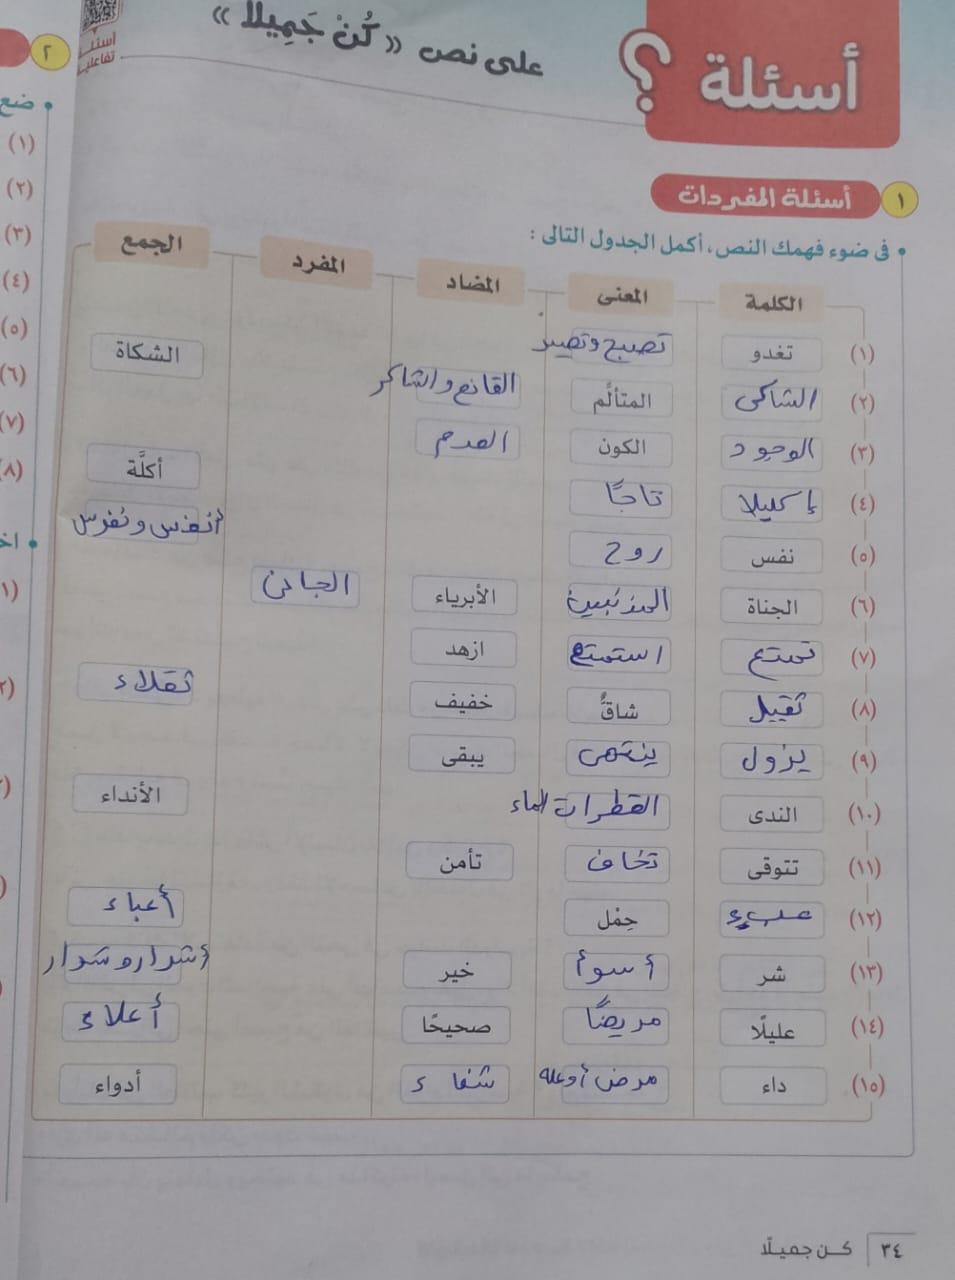 أسئلة ؟
على نص «كُنْ جَمِيلًا»
أسئلة تفاعلية
١ أسئلة المفردات
• فى ضوء فهمك النص، أكمل الجدول التالى :
الكلمة المعنى المضاد المفرد الجمع
(١) تغدو تصبح وتصير
الشكاة
(٢) الشاكى المتألّم القانع والشاكر
(٣) الوجود الكون العدم
أكلَّة
(٤) إكليلا تاجًا
(٥) نفس روح أنفس ونفوس
(٦) الجناة المذنبين الأبرياء الجانى
(٧) تمتع استمتع ازهد
(٨) ثقيل شاقٌّ خفيف ثقلاء
(٩) يزول ينتهى يبقى
(١٠) الندى القطرات الماء الأنداء
(١١) تتوقى تخاف تأمن
(١٢) عبء حِمْل أعباء
(١٣) شر أسوأ خير أشرار وشرار
(١٤) عليلًا مريضًا صحيحًا أعلاء
(١٥) داء مرض أوعلة شفاء أدواء
٣٤ كـن جميلًا
٢
• ضع
(١)
(٢)
(٣)
(٤)
(٥)
(٦)
(٧)
(٨)
• اخ